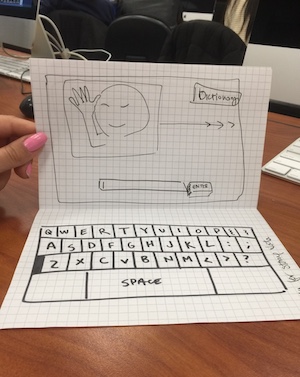 Dictionary
ENTER
Q W E R T Y U I O P { } !
A S D F G H J K L : ; ,
Z X C V B N M < > ?
SPACE